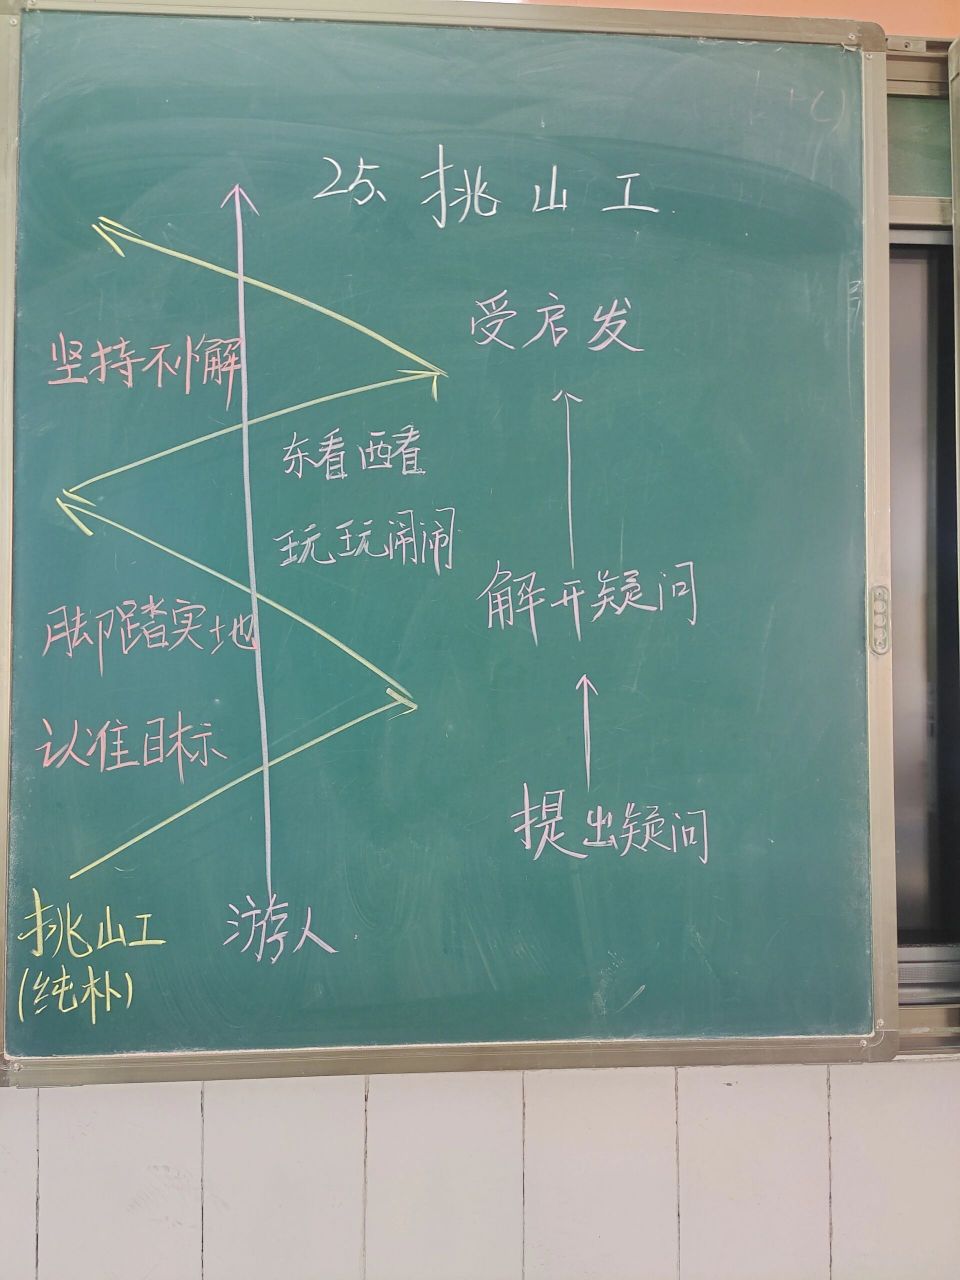 25、挑山工
受启发
坚持不懈
东看西看
玩玩闹闹
解开疑问
脚踏实地
认准目标
提出疑问
挑山工
(纯朴)
游人